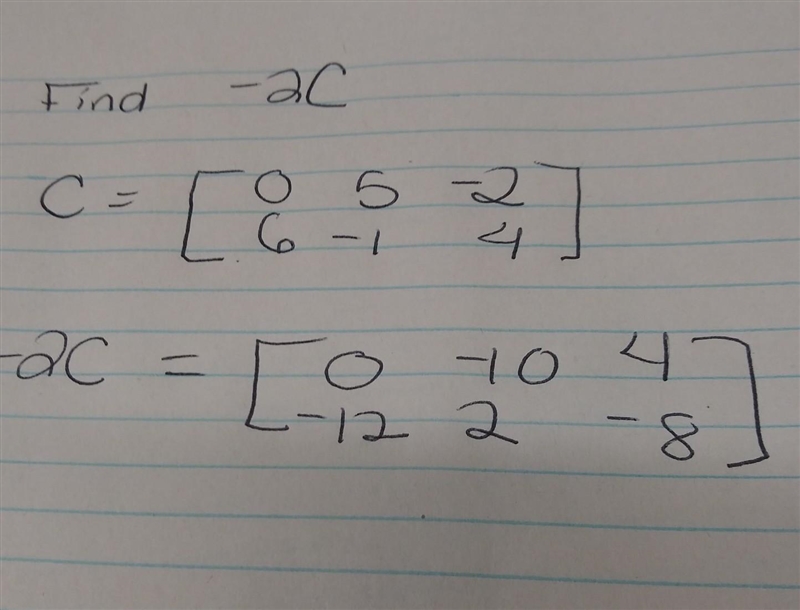 Find -2C
C = [ 0 5 -2
6 -1 4 ]
-2C = [ 0 -10 4
-12 2 -8 ]